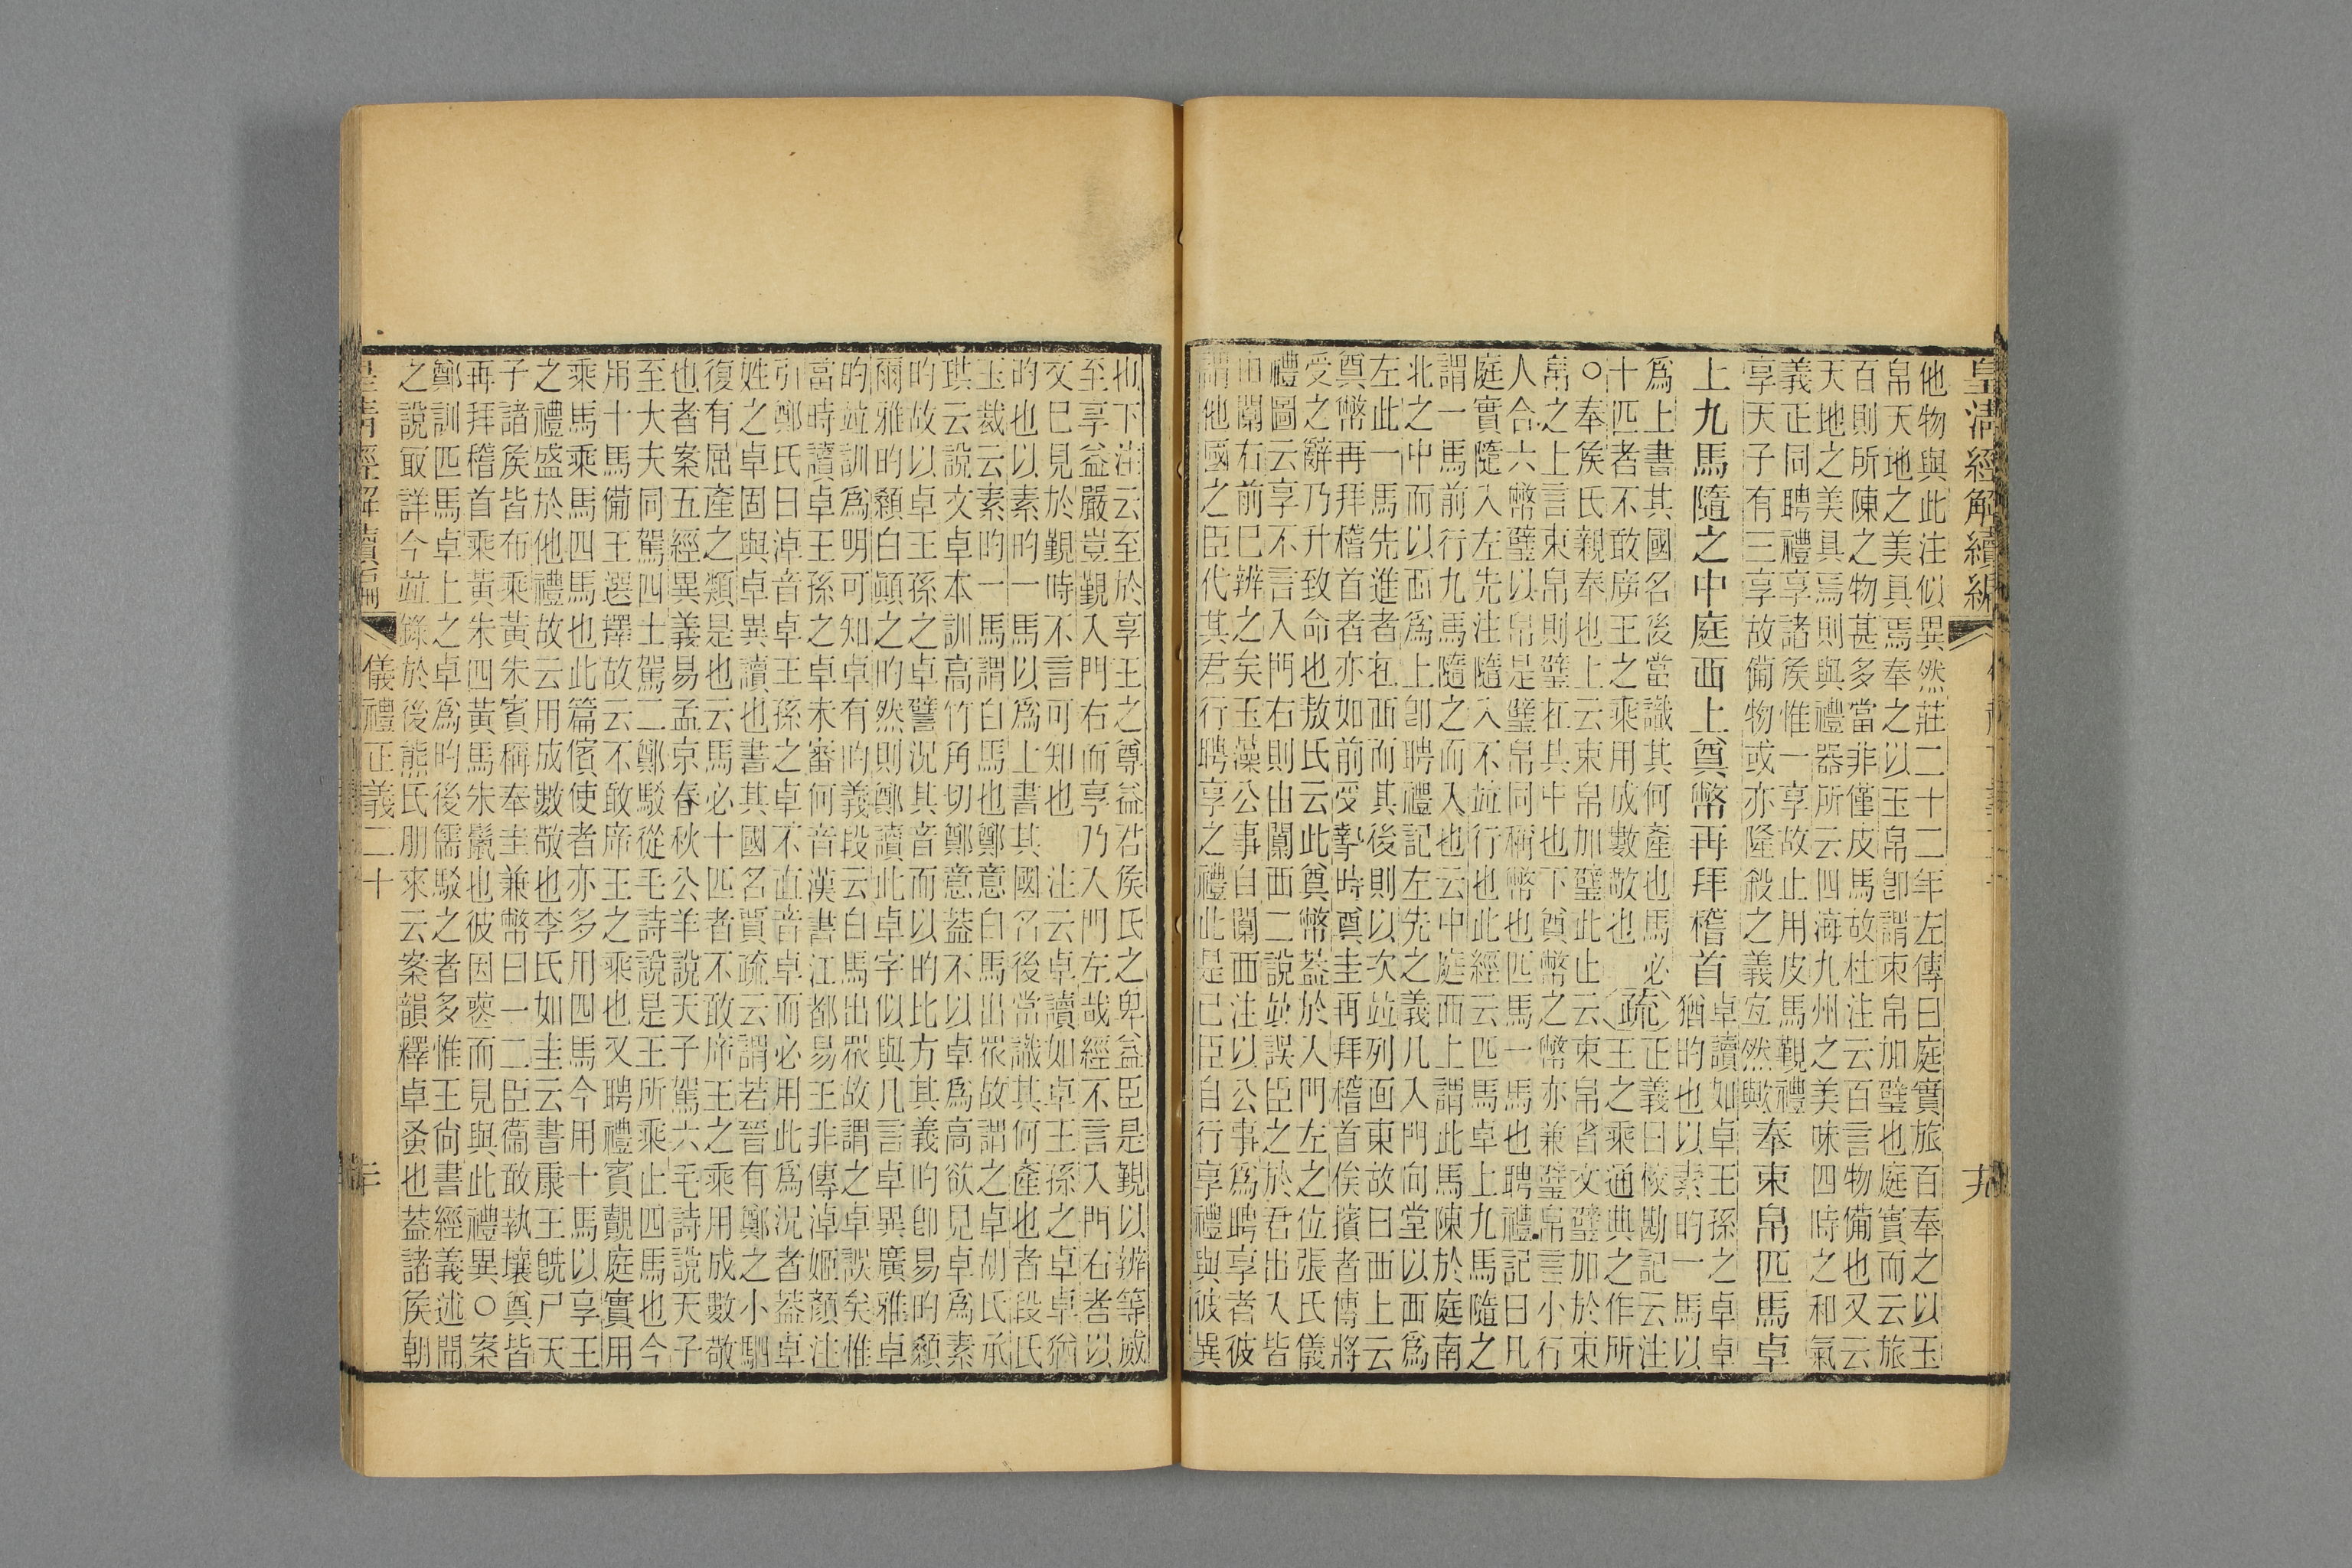 皇清經解續編
十九
他物與此注似異然莊二十二年左傳曰庭實旅百奉之以玉
帛天地之美具焉奉之以玉帛卽謂束帛加璧也庭實而云旅
百則所陳之物甚多當非僅皮馬故杜注云百言物備也又云
天地之美具焉則與禮器所云四海九州之美味四時之和氣
義正同聘禮享諸侯惟一享故止用皮馬覲禮
享天子有三享故備物或亦隆殺之義宜然歟
奉束帛匹馬卓
上九馬隨之中庭西上奠幣再拜稽首
卓讀如卓王孫之卓卓
猶旳也以素旳一馬以
爲上書其國名後當識其何產也馬必
十匹者不敢斥王之乘用成數敬也
疏
正義曰校勘記云注
王之乘通典之作所
〇奉侯氏親奉也上云束帛加璧此止云束帛省文璧加於束
帛之上言束帛則璧在其中也下奠幣之幣亦兼璧帛言小行
人合六幣璧以帛是璧帛同稱幣也匹馬一馬也聘禮記曰凡
庭實隨入左先注隨入不竝行也此經云匹馬卓上九馬隨之
謂一馬前行九馬隨之而入也云中庭而上謂此馬陳於庭南
北之中而以西爲上卽聘禮記左先之義凡入門向堂以西爲
左此一馬先進者在西而其後則以次竝列面東故曰西上云
奠幣再拜稽首者亦如前受摯時奠圭再拜稽首俟擯者傳將
受之辭乃升致命也敖氏云此奠幣蓋於入門左之位張氏儀
禮圖云享不言入門右則由闑西二說竝誤臣之於君出入皆
由闑右前已辨之矣玉藻公事自闑西注以公事爲聘享者彼
謂他國之臣代其君行聘享之禮此是已臣自行享禮與彼異
也下注云至於享王之尊益君侯氏之卑益臣是覲以辨等威
至享益嚴豈覲入門右而享乃入門左哉經不言入門右者以
文已見於覲時不言可知也 注云卓讀如卓王孫之卓卓猶
旳也以素旳一馬以爲上書其國名後當識其何產也者段氏
玉裁云素旳一馬謂白馬也鄭意白馬出衆故謂之卓胡氏承
珙云說文卓本訓高竹角切鄭意蓋不以卓爲高欲見卓爲素
旳故以卓王孫之卓譬況其音而以旳比方其義旳卽易旳顙
爾雅旳顙白顚之旳然則鄭讀此卓字似與凡言卓異廣雅卓
旳竝訓爲明可知卓有旳義段云白馬出衆故謂之卓誤矣惟
當時讀卓王孫之卓未審何音漢書江都易王非傳淖姬顏注
引鄭氏曰淖音卓王孫之卓不直音卓而必用此爲況者蓋卓
姓之卓固與卓異讀也書其國名賈疏云謂若晉有鄭之小駟
復有屈產之類是也云馬必十匹者不敢斥王之乘用成數敬
也者案五經異義易孟京春秋公羊說天子駕六毛詩說天子
至大夫同駕四士駕二鄭駁從毛詩說是王所乘止四馬也今
用十馬備王選擇故云不敢斥王之乘也又聘禮賓覿庭實用
乘馬乘馬四馬也此篇儐使者亦多用四馬今用十馬以享王
之禮盛於他禮故云用成數敬也李氏如圭云書康王旣尸天
子諸侯皆布乘黃朱賓稱奉圭兼幣曰一二臣衞敢執壤奠皆
再拜稽首乘黃朱四黃馬朱鬣也彼因喪而見與此禮異〇案
鄭訓匹馬卓上之卓爲旳後儒駁之者多惟王尙書經義述聞
之說取詳今竝錄於後熊氏朋來云案韻釋卓蚤也蓋諸侯朝
皇清經解續編
儀禮正義二十